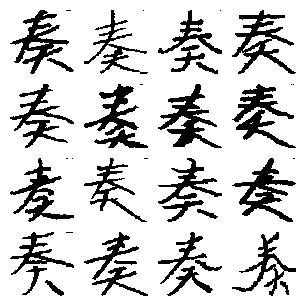 奏奏奏奏
奏奏奏奏
奏奏奏奏
奏奏奏奏